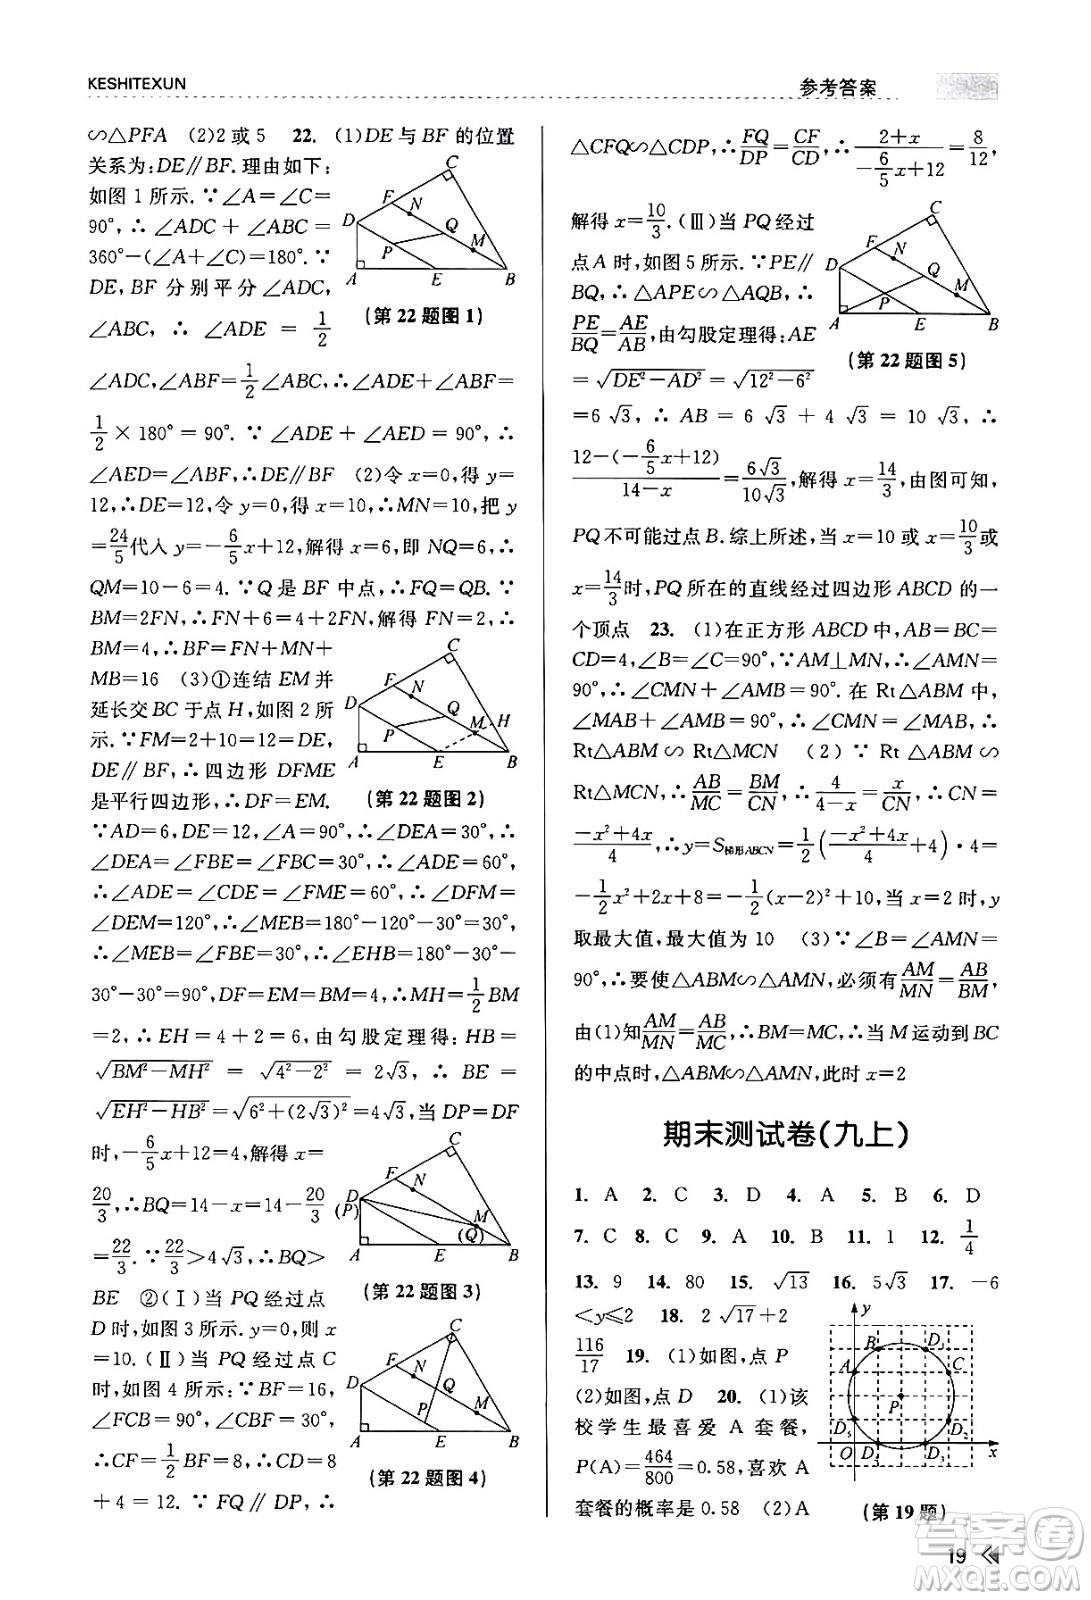 KESHITEXUN
参考答案
∽△PFA (2)2或5 22. (1)DE与BF的位置
关系为:DE∥BF.理由如下:
如图1所示.∵∠A=∠C=
90°,∴∠ADC+∠ABC=
360°-(∠A+∠C)=180°.∵
DE,BF分别平分∠ADC,
∠ABC,∴∠ADE=1/2
∠ADC,∠ABF=1/2∠ABC,∴∠ADE+∠ABF=
1/2×180°=90°.∵∠ADE+∠AED=90°,∴
∠AED=∠ABF,∴DE∥BF (2)令x=0,得y=
12,∴DE=12,令y=0,得x=10,∴MN=10,把y
=24/5代入y=-6/5x+12,解得x=6,即NQ=6,∴
QM=10-6=4.∵Q是BF中点,∴FQ=QB.∵
BM=2FN,∴FN+6=4+2FN,解得FN=2,∴
BM=4,∴BF=FN+MN+
MB=16 (3)①连结EM并
延长交BC于点H,如图2所
示.∵FM=2+10=12=DE,
DE∥BF,∴四边形DFME
是平行四边形,∴DF=EM.
∵AD=6,DE=12,∠A=90°,∴∠DEA=30°,
∴∠DEA=∠FBE=∠FBC=30°,∴∠ADE=60°,
∴∠ADE=∠CDE=∠FME=60°,∴∠DFM=
∠DEM=120°,∴∠MEB=180°-120°-30°=30°,
∴∠MEB=∠FBE=30°,∴∠EHB=180°-30°-
30°-30°=90°,DF=EM=BM=4,∴MH=1/2BM
=2,∴EH=4+2=6,由勾股定理得:HB=
√(BM²-MH²)=√(4²-2²)=2√3,∴BE=
√(EH²-HB²)=√(6²+(2√3)²)=4√3,当DP=DF
时,-6/5x+12=4,解得x=
20/3,∴BQ=14-x=14-20/3
=22/3.∵22/3>4√3,∴BQ>
BE ②(Ⅰ)当PQ经过点
D时,如图3所示.y=0,则x
=10.(Ⅱ)当PQ经过点C
时,如图4所示.∵BF=16,
∠FCB=90°,∠CBF=30°,
∴CF=1/2BF=8,∴CD=8
+4=12.∵FQ∥DP,∴
C F N D Q M P A E B
(第22题图1)
C F N D Q M H P A E B
(第22题图2)
C F N D (P) M (Q) A E B
(第22题图3)
C F N D Q M P A E B
(第22题图4)
△CFQ∽△CDP,∴FQ/DP=CF/CD,∴(2+x)/(-6/5x+12)=8/12,
解得x=10/3.(Ⅲ)当PQ经过
点A时,如图5所示.∵PE∥
BQ,∴△APE∽△AQB,∴
PE/BQ=AE/AB,由勾股定理得:AE
=√(DE²-AD²)=√(12²-6²)
=6√3,∴AB=6√3+4√3=10√3,∴
(12-(-6/5x+12))/(14-x)=6√3/10√3,解得x=14/3,由图可知,
PQ不可能过点B.综上所述,当x=10或x=10/3或
x=14/3时,PQ所在的直线经过四边形ABCD的一
个顶点 23. (1)在正方形ABCD中,AB=BC=
CD=4,∠B=∠C=90°,∵AM⊥MN,∴∠AMN=
90°,∴∠CMN+∠AMB=90°.在Rt△ABM中,
∠MAB+∠AMB=90°,∴∠CMN=∠MAB,∴
Rt△ABM∽Rt△MCN (2)∵Rt△ABM∽
Rt△MCN,∴AB/MC=BM/CN,∴4/(4-x)=x/CN,∴CN=
(-x²+4x)/4,∴y=S梯形ABCN=1/2((-x²+4x)/4+4)·4=
-1/2x²+2x+8=-1/2(x-2)²+10,∴当x=2时,y
取最大值,最大值为10 (3)∵∠B=∠AMN=
90°,∴要使△ABM∽△AMN,必须有AM/MN=AB/BM,
由(1)知AM/MN=AB/MC,∴BM=MC,∴当M运动到BC
的中点时,△ABM∽△AMN,此时x=2
C F N D Q M P A E B
(第22题图5)
期末测试卷(九上)
1. A 2. C 3. D 4. A 5. B 6. D
7. C 8. C 9. A 10. B 11. 1 12. 1/4
13. 9 14. 80 15. √13 16. 5√3 17. -6
<y≤2 18. 2√17+2
116/17 19. (1)如图,点P
(2)如图,点D 20. (1)该
校学生最喜爱A套餐,
P(A)=464/800=0.58,喜欢A
套餐的概率是0.58 (2)A
y B D₁ A C P D₅ D₂ O D₄ D₃ x
(第19题)
答案圈
19